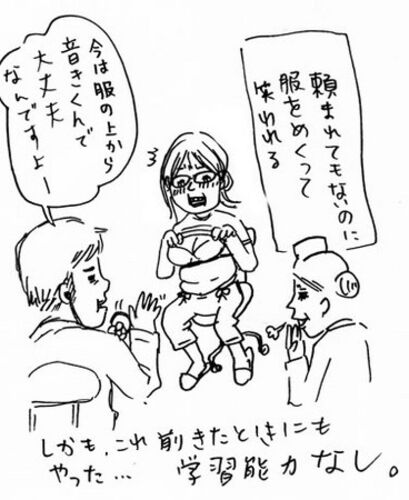 頼まれてもないのに
服をめくって
笑われる
今は服の上から
音きくんで
大丈夫
なんですよー
しかも、これ前きたときにも
やった… 学習能力なし。